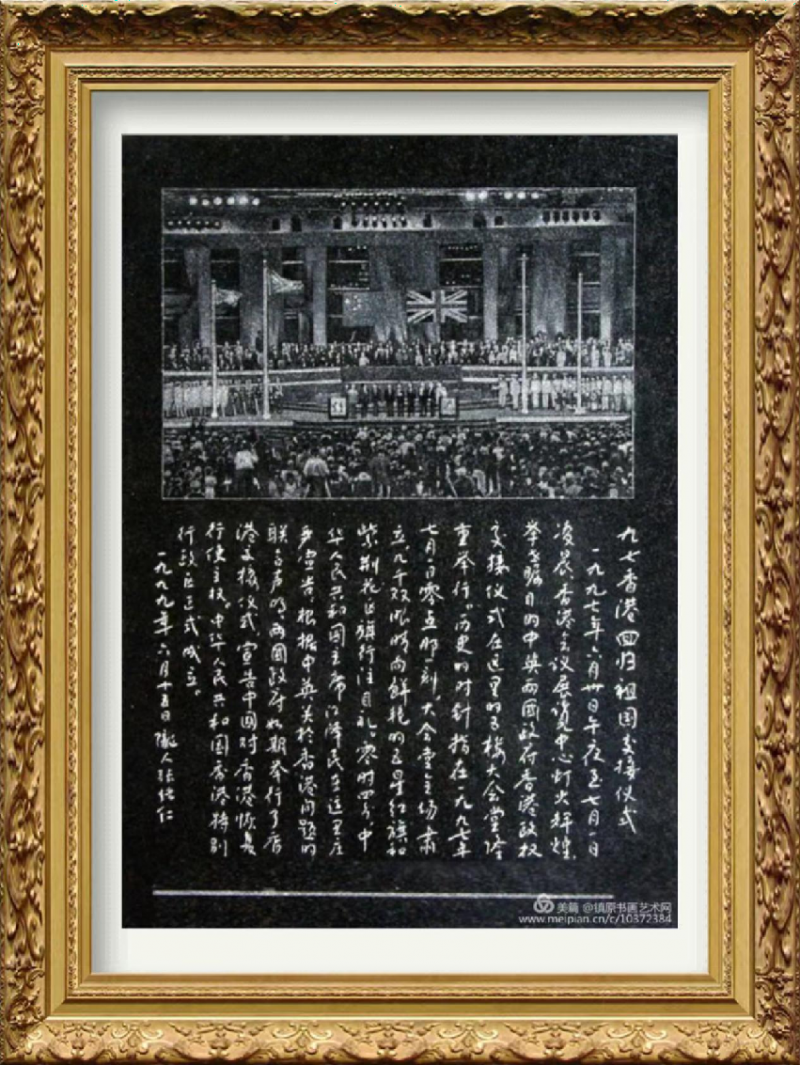 九七香港回归祖国交接仪式
一九九七年六月卅日午夜至七月一日
凌晨香港会议展览中心灯火辉煌,
举世瞩目的中英两国政府香港政权
交接仪式在这里的五楼大会堂隆
重举行。历史的时针指在一九九七年
七月一日零点那一刻。大会堂全场肃
立几千双眼睛向鲜艳的五星红旗和
紫荆花区旗行注目礼。零时四分,中
华人民共和国主席江泽民在这里庄
严宣告:根据中英关於香港问题的
联合声明,两国政府如期举行了香
港交接仪式,宣告中国对香港恢复
行使主权。中华人民共和国香港特别
行政区正式成立。
一九九九年六月十五日 陇人张 仁
美篇 @镇原书画艺术网
www.meipian.cn/c/10372384